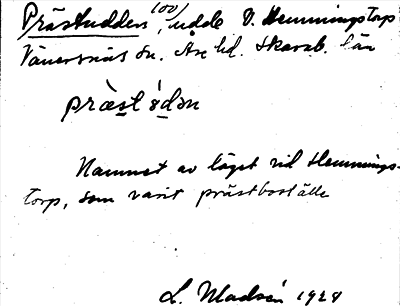 Prästudden (00), udde V. Hemmingstorp
Vänersnäs sn. Åse hd. Skarab. län
præ̀stų́dən
Namnet av läget vid Hemmings-
torp, som varit prästboställe
L. Madsén 1928